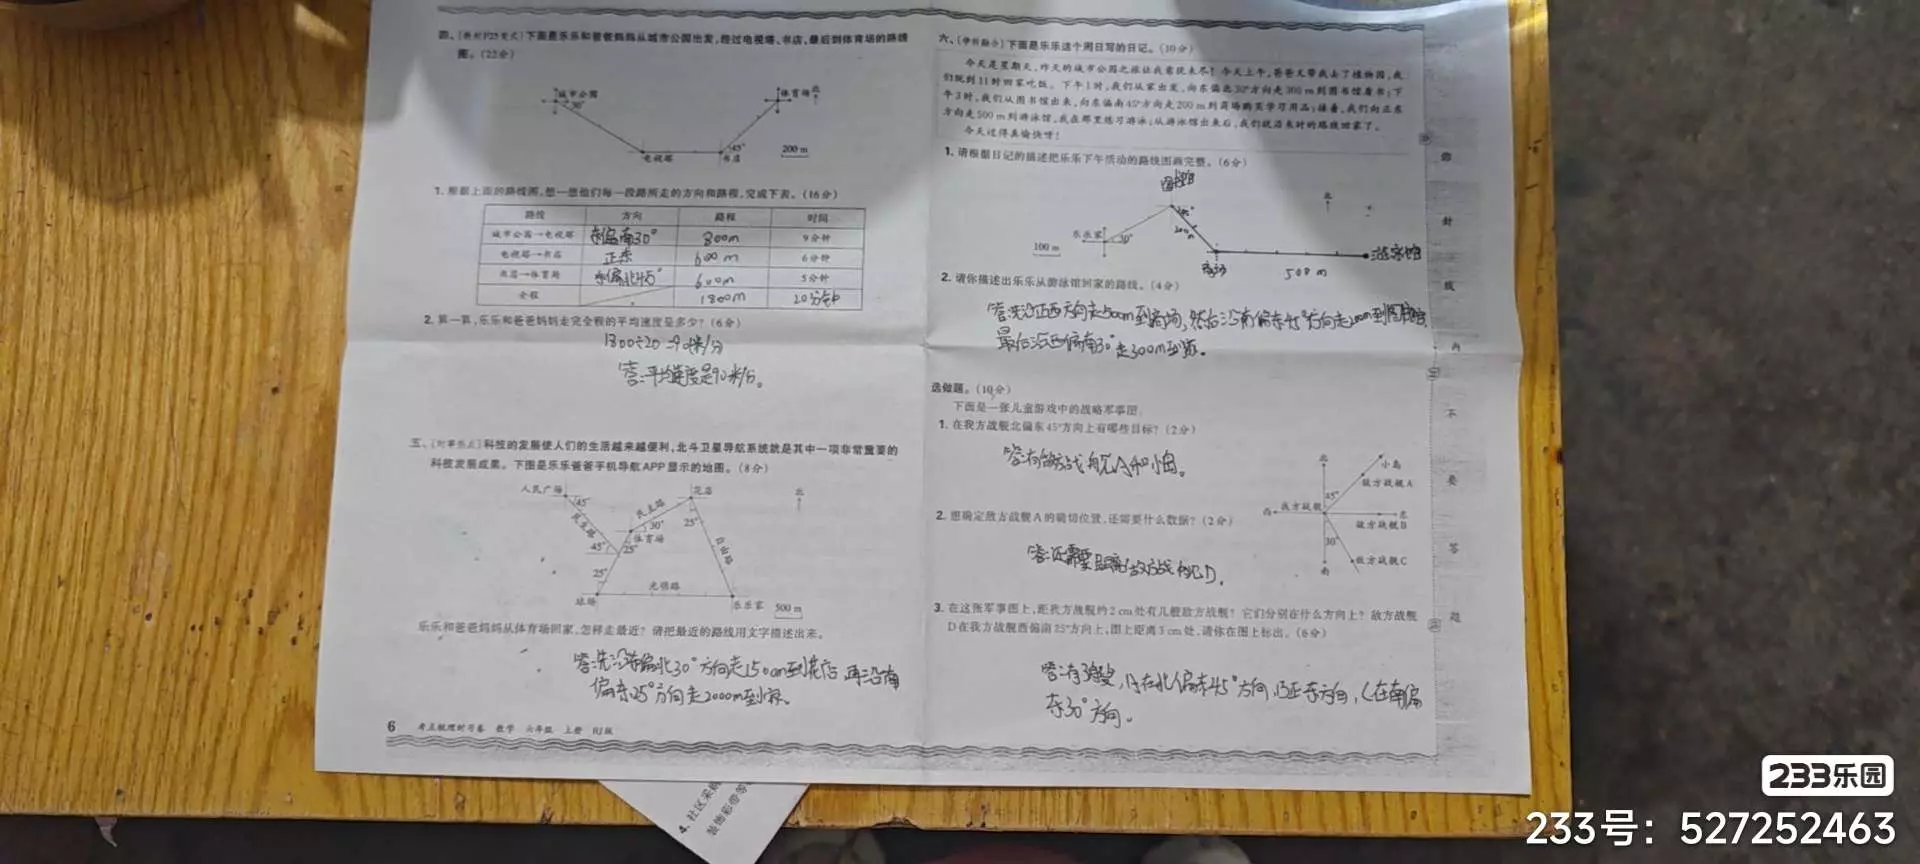 四、(教材P25变式)下面是乐乐和爸爸妈妈从城市公园出发,经过电视塔、书店,最后到体育场的路线
图。(22分)
城市公园
30°
体育场
北
电视塔
45°
书店
200 m
1. 根据上面的路线图,想一想他们每一段路所走的方向和路程,完成下表。(16分)
路线 方向 路程 时间
城市公园→电视塔 东偏南30° 800m 9分钟
电视塔→书店 正东 600m 6分钟
书店→体育场 东偏北45° 600m 5分钟
全程 1800m 20分钟
2. 算一算,乐乐和爸爸妈妈走完全程的平均速度是多少?(6分)
1800÷20=90米/分
答:平均速度是90米/分。
五、(时事热点)科技的发展使人们的生活越来越便利,北斗卫星导航系统就是其中一项非常重要的
科技发展成果。下图是乐乐爸爸手机导航APP显示的地图。(8分)
人民广场
45°
民主路
花店
北
30°
25°
体育场
45°
25°
自由路
25°
光明路
球场
乐乐家
500 m
乐乐和爸爸妈妈从体育场回家,怎样走最近?请把最近的路线用文字描述出来。
答:先沿东偏北30°方向走150m到花店,再沿南
偏东25°方向走2000m到家。
6 考点梳理时习卷 数学 六年级 上册 RJ版
六、(学科融合)下面是乐乐这个周日写的日记。(10分)
今天是星期天,昨天的城市公园之旅让我意犹未尽!今天上午,爸爸又带我去了植物园,我
们玩到11时回家吃饭。下午1时,我们从家出发,向东偏北30°方向走300 m到图书馆看书;下
午3时,我们从图书馆出来,向东偏南45°方向走200 m到商场购买学习用品;接着,我们向正东
方向走500 m到游泳馆,我在那里练习游泳;从游泳馆出来后,我们就沿来时的路线回家了。
今天过得真愉快呀!
1. 请根据日记的描述把乐乐下午活动的路线图画完整。(6分)
图书馆
北
乐乐家
30°
200m
100 m
商场
500 m
游泳馆
2. 请你描述出乐乐从游泳馆回家的路线。(4分)
答:先沿正西方向走500m到商场,然后沿南偏东45°方向走200m到图书馆,
最后沿西偏南30°走300m到家。
选做题。(10分)
下面是一张儿童游戏中的战略军事图
1. 在我方战舰北偏东45°方向上有哪些目标?(2分)
答:有敌方战舰A和小岛。
北
小岛
敌方战舰A
45°
西
我方战舰
东
敌方战舰B
30°
敌方战舰C
南
2. 想确定敌方战舰A的确切位置,还需要什么数据?(2分)
答:还需要距离敌方战舰D。
3. 在这张军事图上,距我方战舰约2 cm处有几艘敌方战舰?它们分别在什么方向上?敌方战舰
D在我方战舰西偏南25°方向上,图上距离3 cm处,请你在图上标出。(6分)
答:有3艘,A在北偏东45°方向,B正东方向,C在南偏
东30°方向。
弥
封
线
内
不
要
答
题
4. 社区采购
装饰彩带等
233乐园
233号:527252463